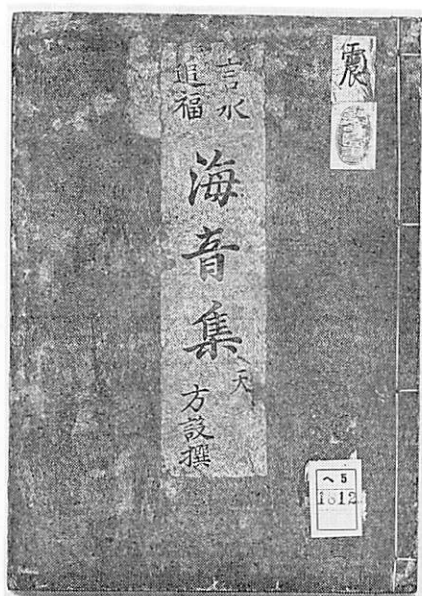 震
言水
追福
海音集
天
方設撰
へ5
1812